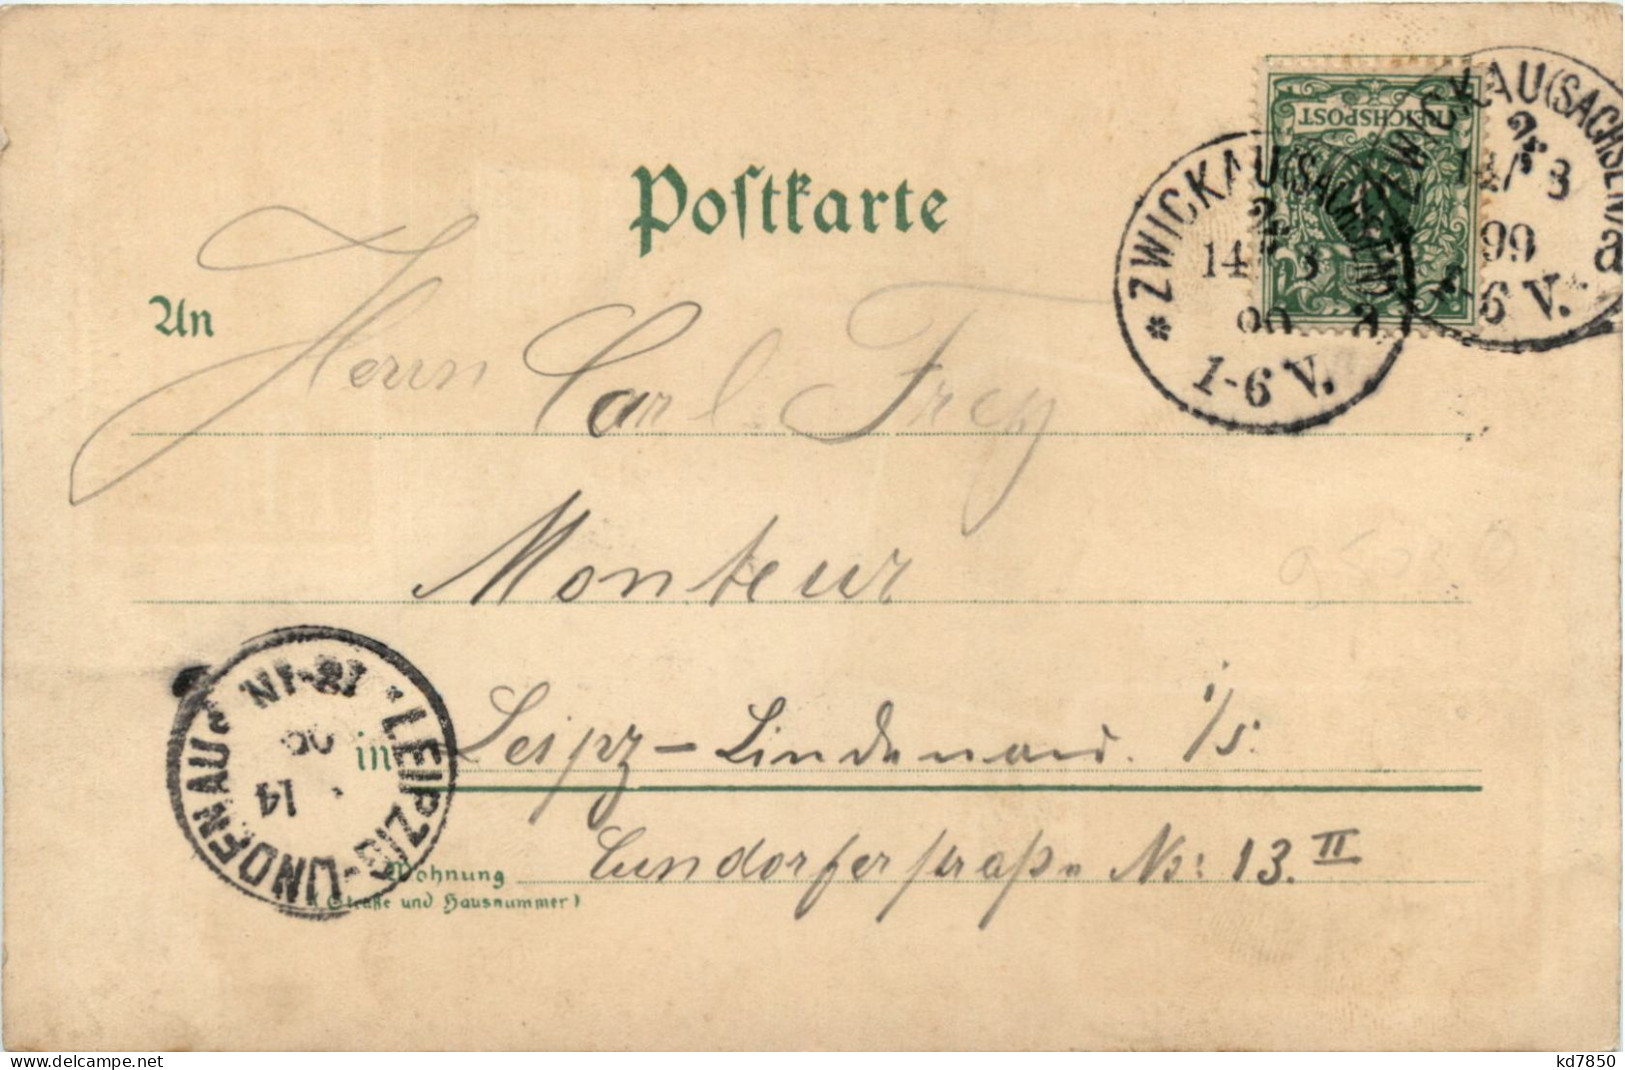 Postkarte
REICHSPOST
ZWICKAU (SACHSEN) a
14/3
99
1-6 V.
* ZWICKAU (SACHSEN) a
14 3
99
1-6 V.
An Herrn Carl Frey
Monteur
in Leipz-Lindenau i/S.
Wohnung
(Straße und Hausnummer)
straße No: 13. II
* LEIPZIG-LINDENAU
12-1N
14
delcampe.net
kd7850